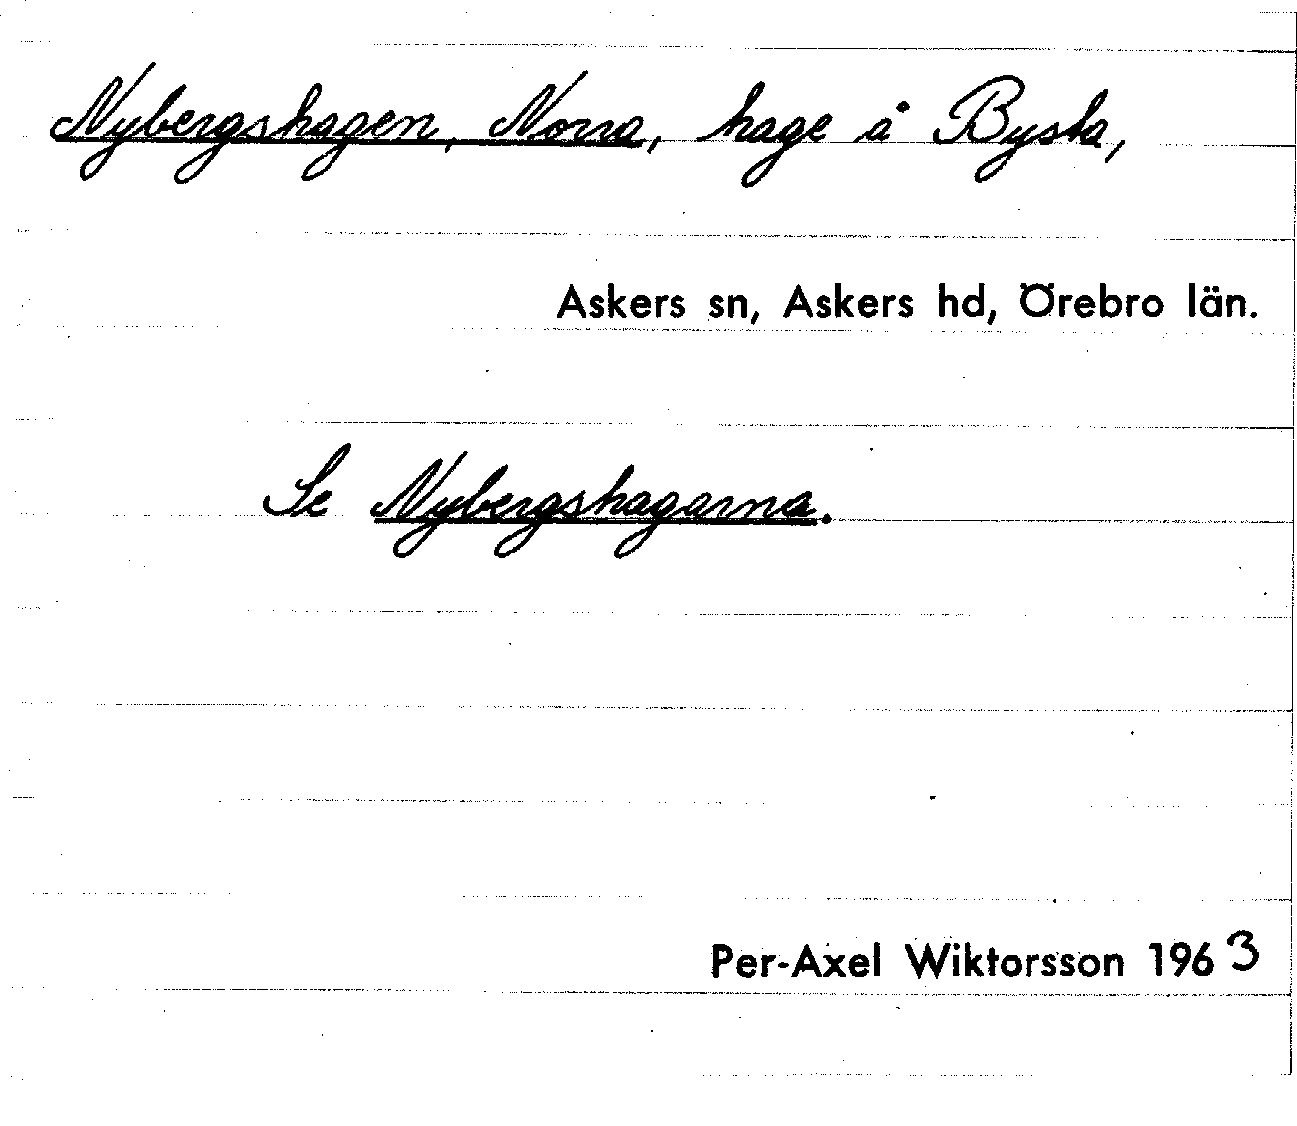 Nybergshagen, Norra, hage å Bysta,
Askers sn, Askers hd, Örebro län.
Se Nybergshagarna.
Per-Axel Wiktorsson 1963